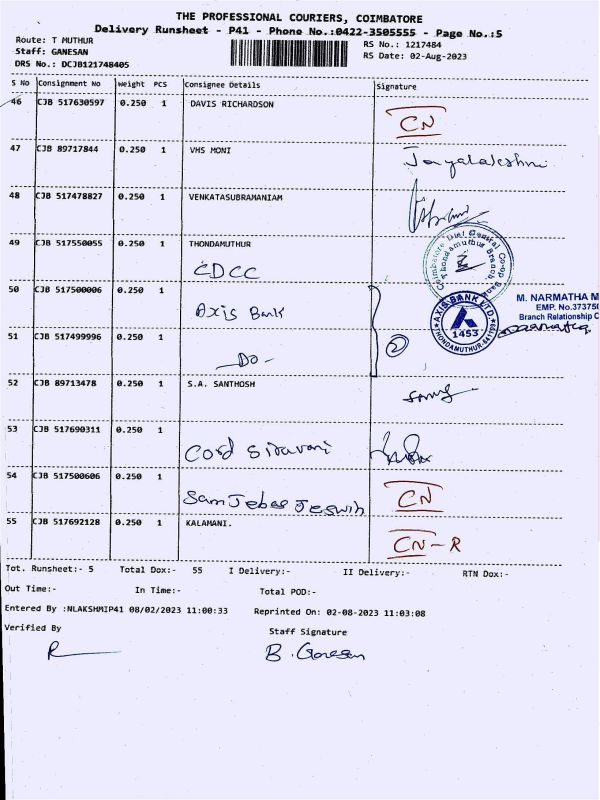 THE PROFESSIONAL COURIERS, COIMBATORE
Delivery Runsheet - P41 - Phone No.:0422-3505555 - Page No.:5
Route: T MUTHUR
Staff: GANESAN
DRS No.: DCJB121748405
RS No.: 1217484
RS Date: 02-Aug-2023
S No Consignment No Weight PCS Consignee Details Signature
46 CJB 517630597 0.250 1 DAVIS RICHARDSON CN
47 CJB 89717844 0.250 1 VHS MONI Jayalakshmi
48 CJB 517478827 0.250 1 VENKATASUBRAMANIAM
49 CJB 517550055 0.250 1 THONDAMUTHUR
CDCC
Coimbatore Dist Central Co-op Bank
Thondamuthur Branch
50 CJB 517500006 0.250 1 Axis Bank
AXIS BANK LTD
1453
THONDAMUTHUR-641109
M. NARMATHA M
EMP. No.37375
Branch Relationship C
51 CJB 517499996 0.250 1 -Do- 2
52 CJB 89713478 0.250 1 S.A. SANTHOSH
53 CJB 517690311 0.250 1 Cord Siruvani
54 CJB 517500606 0.250 1 Sam Jebas Jeswin CN
55 CJB 517692128 0.250 1 KALAMANI. CN-R
Tot. Runsheet:- 5 Total Dox:- 55 I Delivery:- II Delivery:- RTN Dox:-
Out Time:- In Time:- Total POD:-
Entered By :NLAKSHMIP41 08/02/2023 11:00:33 Reprinted On: 02-08-2023 11:03:08
Verified By Staff Signature
B. Ganesan